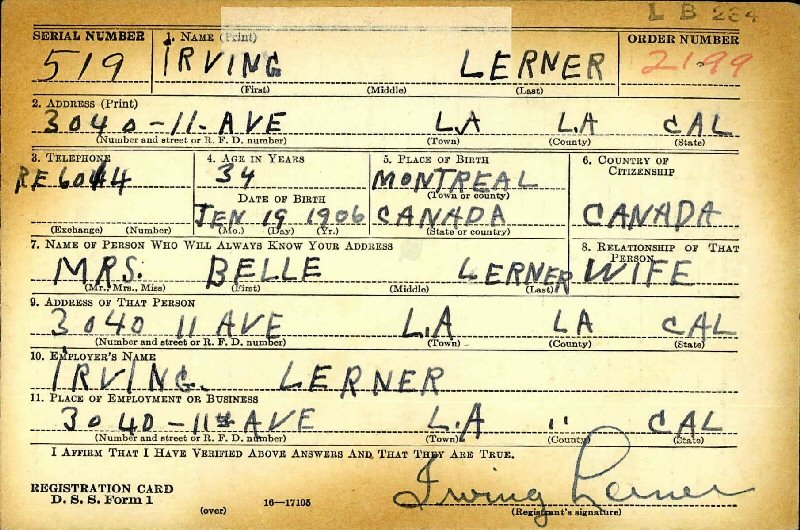 L B 234
SERIAL NUMBER 1. NAME (Print) ORDER NUMBER
519 IRVING LERNER 2199
(First) (Middle) (Last)
2. ADDRESS (Print)
3040-11-AVE L.A L.A CAL
(Number and street or R. F. D. number) (Town) (County) (State)
3. TELEPHONE 4. AGE IN YEARS 5. PLACE OF BIRTH 6. COUNTRY OF CITIZENSHIP
RE 6044 34 MONTREAL
(Town or county)
DATE OF BIRTH
JEN 19 1906 CANADA CANADA
(Exchange) (Number) (Mo.) (Day) (Yr.) (State or country)
7. NAME OF PERSON WHO WILL ALWAYS KNOW YOUR ADDRESS 8. RELATIONSHIP OF THAT PERSON
MRS. BELLE LERNER WIFE
(Mr., Mrs., Miss) (First) (Middle) (Last)
9. ADDRESS OF THAT PERSON
3040 11 AVE L.A LA CAL
(Number and street or R. F. D. number) (Town) (County) (State)
10. EMPLOYER'S NAME
IRVING. LERNER
11. PLACE OF EMPLOYMENT OR BUSINESS
3040-11th AVE L.A " CAL
(Number and street or R. F. D. number) (Town) (County) (State)
I AFFIRM THAT I HAVE VERIFIED ABOVE ANSWERS AND THAT THEY ARE TRUE.
Irving Lerner
REGISTRATION CARD
D. S. S. Form 1 (over) 16—17105 (Registrant's signature)